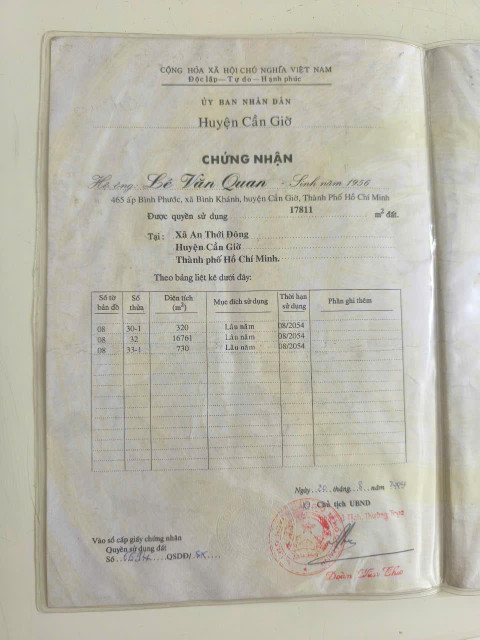 CỘNG HÒA XÃ HỘI CHỦ NGHĨA VIỆT NAM
Độc lập—Tự do—Hạnh phúc
ỦY BAN NHÂN DÂN
Huyện Cần Giờ
CHỨNG NHẬN
Hộ ông: Lê Văn Quan - Sinh năm 1956
465 ấp Bình Phước, xã Bình Khánh, huyện Cần Giờ, Thành Phố Hồ Chí Minh
Được quyền sử dụng 17811 m² đất.
Tại: Xã An Thới Đông
Huyện Cần Giờ
Thành phố Hồ Chí Minh.
Theo bảng liệt kê dưới đây:
Số tờ bản đồ Số thửa Diện tích (m²) Mục đích sử dụng Thời hạn sử dụng Phần ghi thêm
08 30-1 320 Lâu năm 08/2054
08 32 16761 Lâu năm 08/2054
08 33-1 730 Lâu năm 08/2054
Ngày 20 tháng 8 năm 2004
Chủ tịch UBND
Vào sổ cấp giấy chứng nhận
Quyền sử dụng đất
Số QSDĐ/